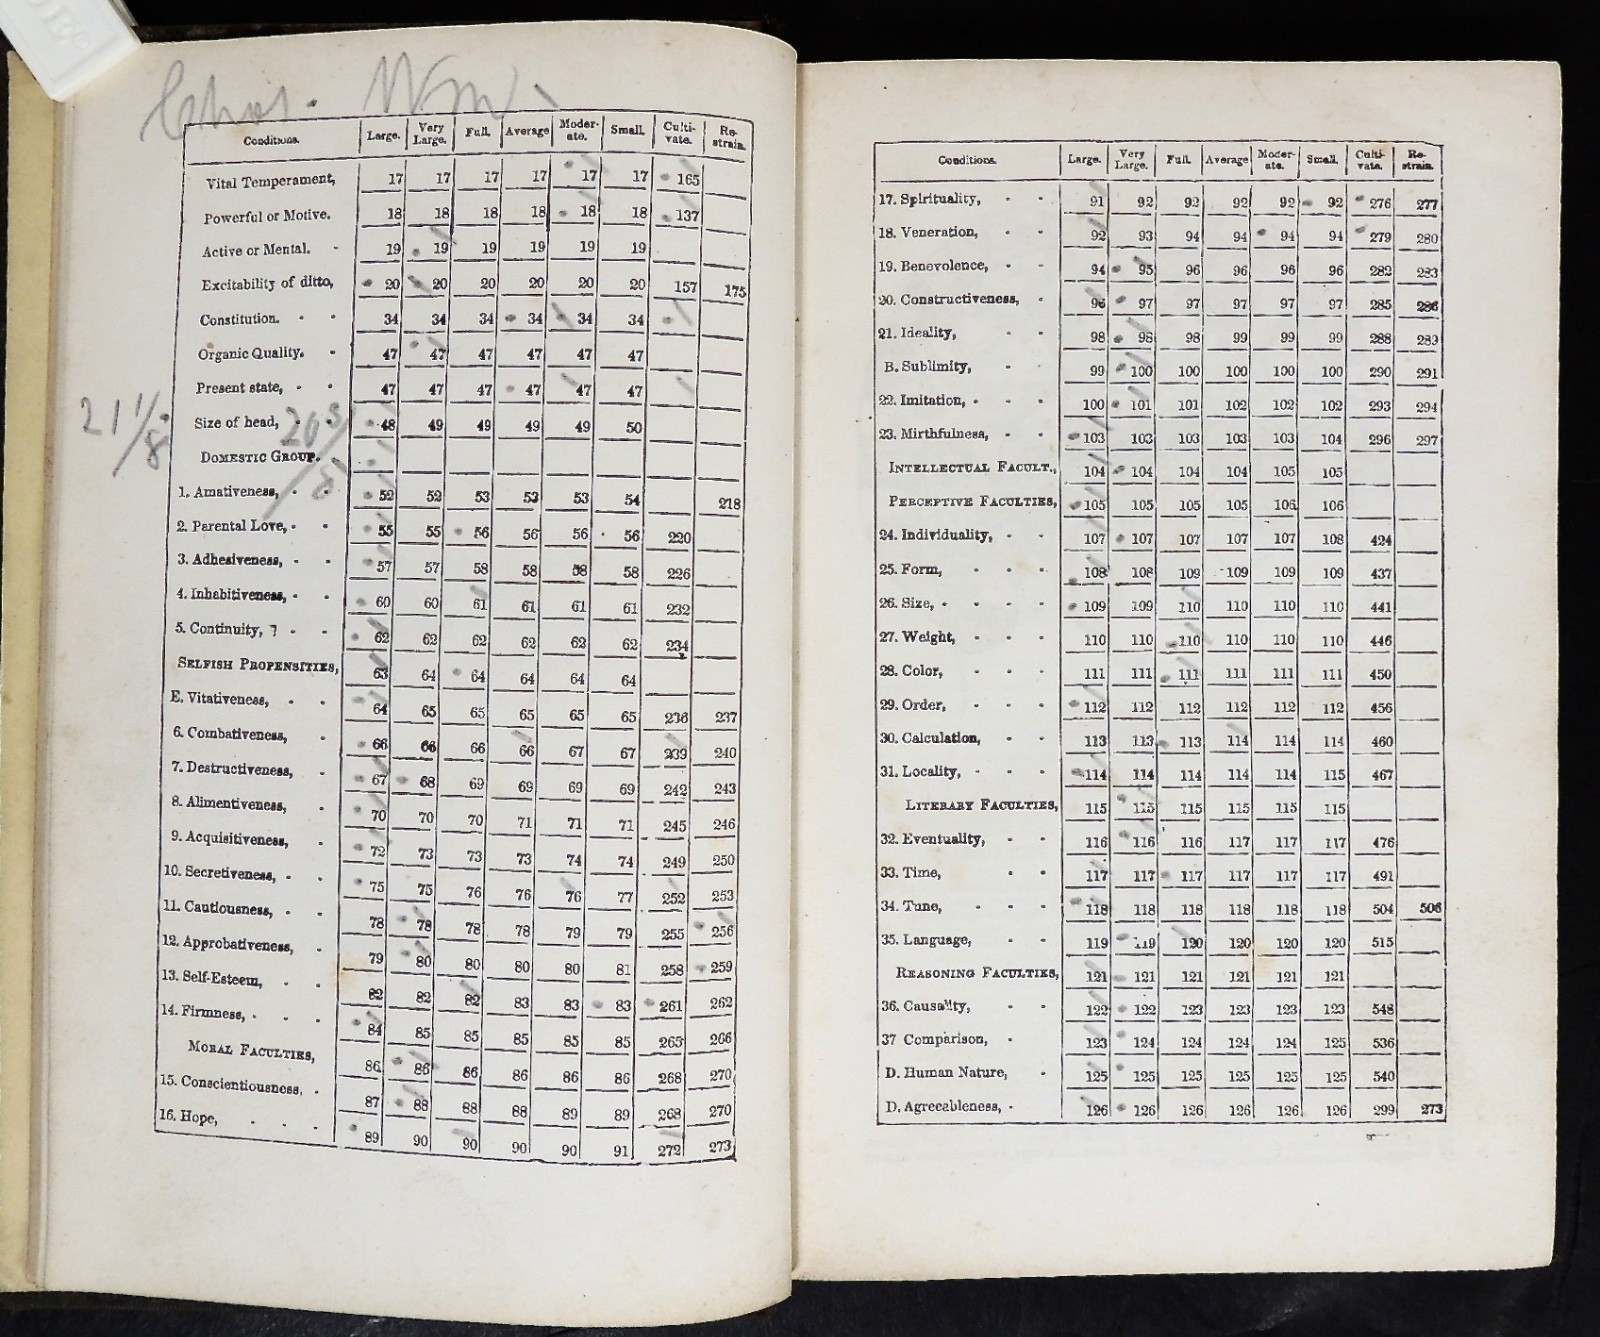 Chas. Wm.
Conditions. Large. Very Large. Full. Average Moder-ate. Small. Culti-vate. Re-strain.
Vital Temperament, 17 17 17 17 17 17 165
Powerful or Motive. 18 18 18 18 18 18 137
Active or Mental. - 19 19 19 19 19 19
Excitability of ditto, 20 20 20 20 20 20 157 175
Constitution. - - 34 34 34 34 34 34
Organic Quality. - 47 47 47 47 47 47
Present state, - - 47 47 47 47 47 47
21 1/8 Size of head, - - 20 5/8 48 49 49 49 49 50
DOMESTIC GROUP.
1. Amativeness, - - 52 52 53 53 53 54 218
2. Parental Love, - - 55 55 56 56 56 56 220
3. Adhesiveness, - - 57 57 58 58 58 58 226
4. Inhabitiveness, - - 60 60 61 61 61 61 232
5. Continuity, ? - - 62 62 62 62 62 62 234
SELFISH PROPENSITIES, 63 64 64 64 64 64
E. Vitativeness, - - 64 65 65 65 65 65 236 237
6. Combativeness, - 66 66 66 66 67 67 239 240
7. Destructiveness, - 67 68 69 69 69 69 242 243
8. Alimentiveness, - 70 70 70 71 71 71 245 246
9. Acquisitiveness, - 72 73 73 73 74 74 249 250
10. Secretiveness, - - 75 75 76 76 76 77 252 253
11. Cautiousness, - - 78 78 78 78 79 79 255 256
12. Approbativeness, - 79 80 80 80 80 81 258 259
13. Self-Esteem, - - 82 82 82 83 83 83 261 262
14. Firmness, - - - 84 85 85 85 85 85 265 266
MORAL FACULTIES, 86 86 86 86 86 86 268 270
15. Conscientiousness, - 87 88 88 88 89 89 268 270
16. Hope, - - - 89 90 90 90 90 91 272 273
Conditions. Large. Very Large. Full. Average Moder-ate. Small. Culti-vate. Re-strain.
17. Spirituality, - - 91 92 92 92 92 92 276 277
18. Veneration, - - 92 93 94 94 94 94 279 280
19. Benevolence, - - 94 95 96 96 96 96 282 283
20. Constructiveness, - 96 97 97 97 97 97 285 286
21. Ideality, - - 98 98 98 99 99 99 288 289
B. Sublimity, - - 99 100 100 100 100 100 290 291
22. Imitation, - - - 100 101 101 102 102 102 293 294
23. Mirthfulness, - - 103 103 103 103 103 104 296 297
INTELLECTUAL FACULT., 104 104 104 104 105 105
PERCEPTIVE FACULTIES, 105 105 105 105 106 106
24. Individuality, - - 107 107 107 107 107 108 424
25. Form, - - - 108 108 109 109 109 109 437
26. Size, - - - - 109 109 110 110 110 110 441
27. Weight, - - - 110 110 110 110 110 110 446
28. Color, - - - 111 111 111 111 111 111 450
29. Order, - - - 112 112 112 112 112 112 456
30. Calculation, - - 113 113 113 114 114 114 460
31. Locality, - - - 114 114 114 114 114 115 467
LITERARY FACULTIES, 115 115 115 115 115 115
32. Eventuality, - - 116 116 116 117 117 117 476
33. Time, - - 117 117 117 117 117 117 491
34. Tune, - - - 118 118 118 118 118 118 504 506
35. Language, - - 119 119 120 120 120 120 515
REASONING FACULTIES, 121 121 121 121 121 121
36. Causality, - - 122 122 123 123 123 123 548
37 Comparison, - 123 124 124 124 124 125 536
D. Human Nature, - 125 125 125 125 125 125 540
D. Agreeableness, - 126 126 126 126 126 126 299 273